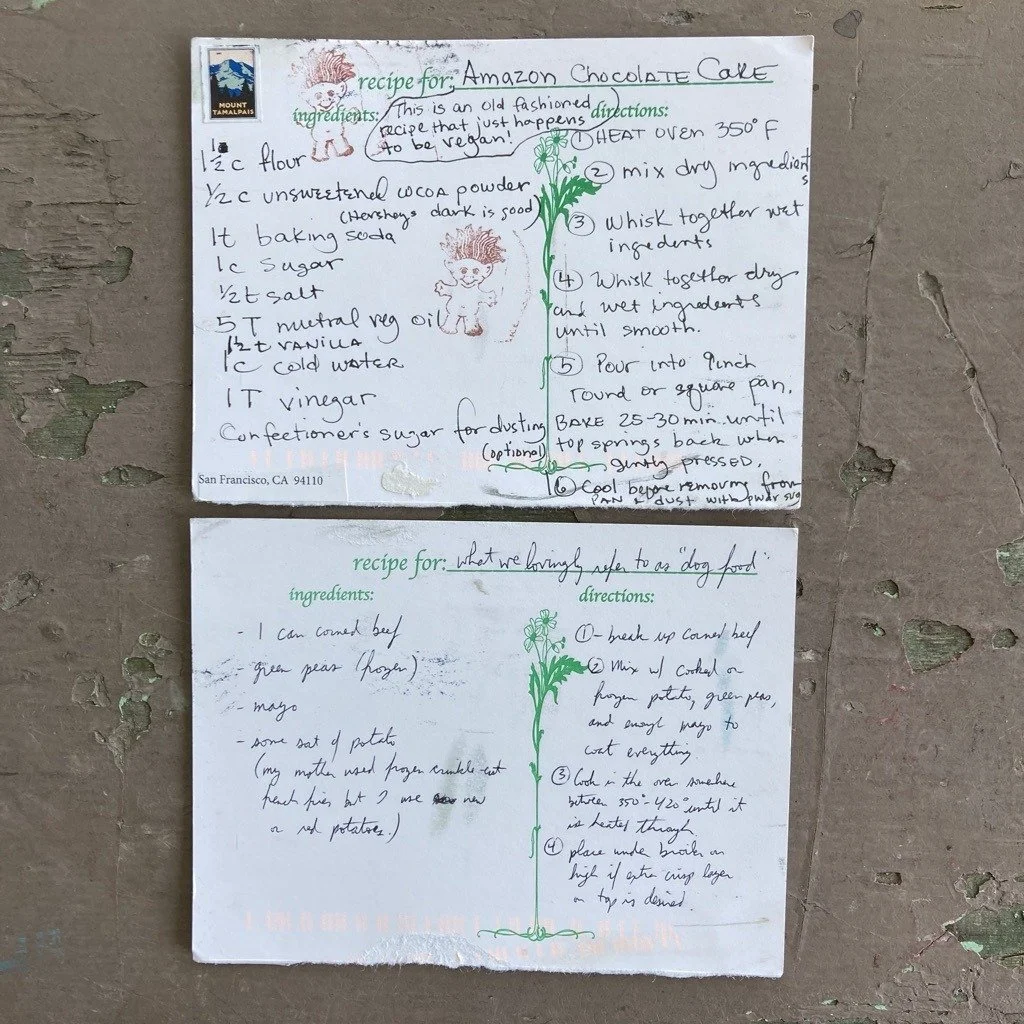 MOUNT
TAMALPAIS
recipe for: Amazon Chocolate Cake
ingredients:
This is an old fashioned
recipe that just happens
to be vegan!
1 1/2 c flour
1/2 c unsweetened cocoa powder
(Hersheys dark is good)
1t baking soda
1c Sugar
1/2 t salt
5 T nuetral veg oil
1 1/2 t VANILLA
1c cold water
1T vinegar
Confectioner's sugar for dusting
(optional)
San Francisco, CA 94110
directions:
① HEAT OVEN 350° F
② mix dry ingredients
③ Whisk together wet
ingredients
④ Whisk together dry
and wet ingredients
until smooth.
⑤ Pour into 9inch
round or square pan.
BAKE 25-30 min. until
top springs back when
gently pressed.
⑥ Cool before removing from
PAN & DUST with pwdr sug
recipe for: what we lovingly refer to as "dog food"
ingredients:
- 1 can corned beef
- green peas (frozen)
- mayo
- some sort of potato
(my mother used frozen crinkle-cut
french fries but I use new
or red potatoes.)
directions:
①- break up corned beef
② Mix w/ cooked or
frozen potato, green peas,
and enough mayo to
coat everything.
③ Cook in the oven somewhere
between 350°-420° until it
is heated through.
④ place under broiler on
high if extra crisp layer
on top is desired.